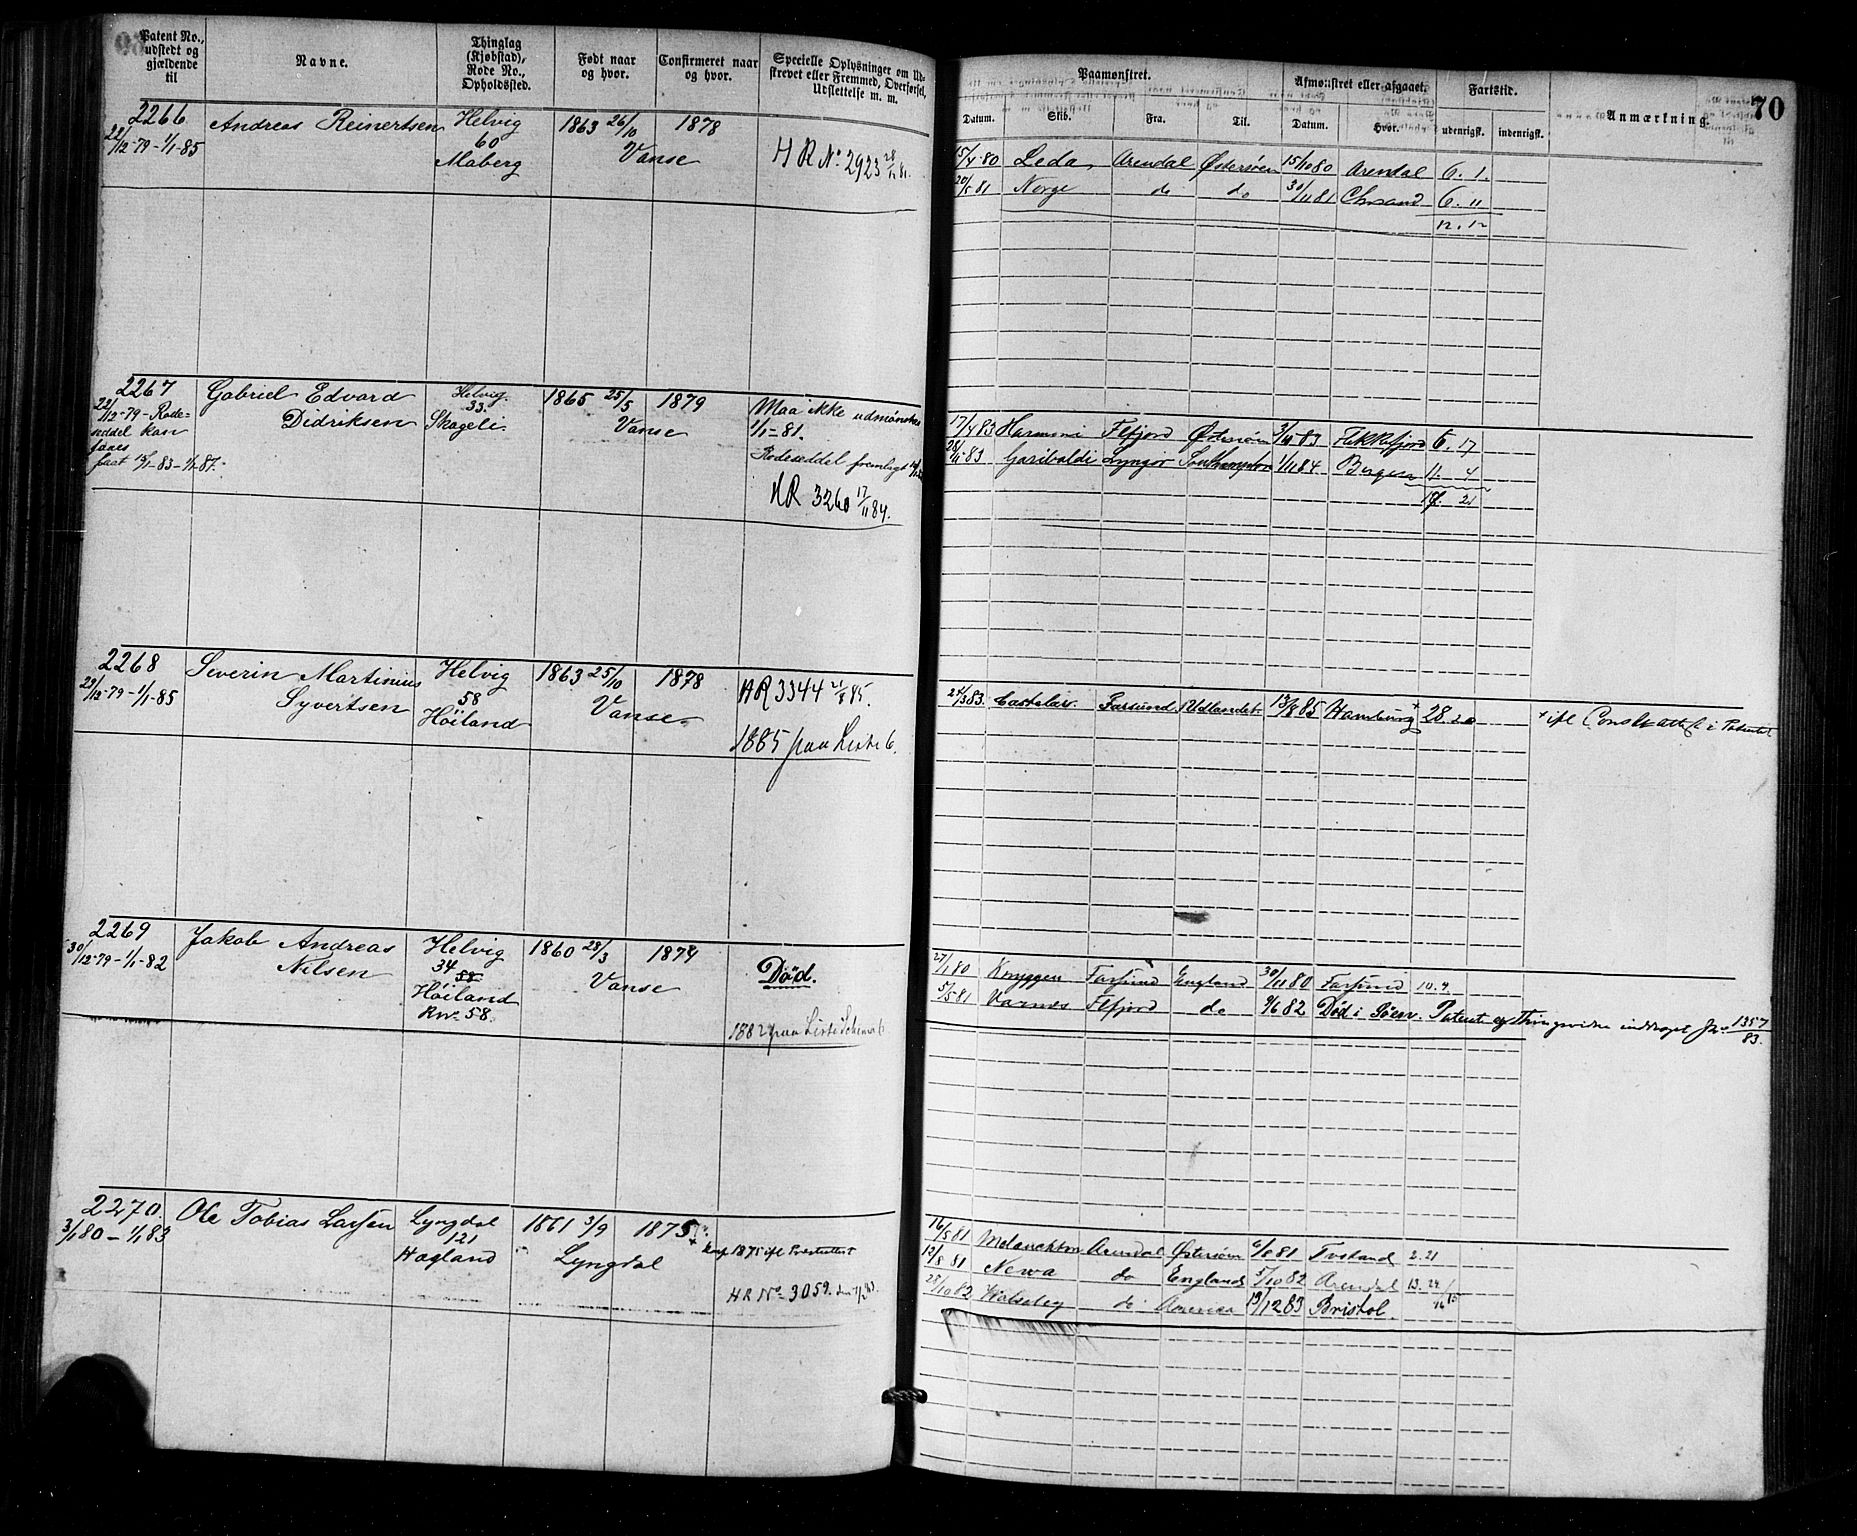 Patent No., udstedt og gjældende til
Navne.
Thinglag (Kjøbstad), Rode No., Opholdssted.
Født naar og hvor.
Confirmeret naar og hvor.
Specielle Oplysninger om Udskrevet eller Fremmed, Overførsel, Udslettelse m. m.
2266
22/12-79-1/1-85
Andreas Reinertsen
Helvig
60
Maberg
1863 26/10
1878
Vanse
HR No 2923 28/12 81.
2267
22/12-79-Rode=
seddel kan
faaes
1/1-87.
Gabriel Edvard
Didriksen
Helvig.
33.
Skageli.
1865 25/5
1879
Vanse
Maa ikke udmønstres
1/1-81.
Rodeseddel fremlagt
HR 3260 17/11 84.
2268
29/12-79-1/1-85
Severin Martinius
Syvertsen
Helvig
58
Höiland
1863 25/10
1878
Vanse
HR 3344 21/8 85.
1885 paa Liste 6.
2269
30/12-79-1/1-82
Jakob Andreas
Nilsen
Helvig
34 58
Höiland
RNo 58.
1860 28/3
1874
Vanse
Død.
1882 paa Liste Schema 6
2270.
3/1 80 - 1/1 83
Ole Tobias Larsen
Lyngdal
121
Hagland
1861 3/9
1875
Lyngdal
1875 ifl
HR No 3059.
70
Paamønstret.
Afmønstret eller afgaaet.
Fartstid.
Anmærkning.
Datum. Skib. Fra. Til. Datum. Hvor. udenrigsk. indenrigsk.
15/4-80 Leda, Arendal Østersøen 15/10 80 Arendal 6. 1.
20/5 81 Norge do do 30/11 81 Chrsand 6. 11
12. 12
17/4 83 Harmoni Flfjord Østersøen 3/11-83 Fækkefjord 6. 17
28/11-83 Garibaldi Lyngör Southampton 1/11 84 Bergen 11. 4
17. 21
24/3 83. Castelar. Farsund Udlandet. 13/8 85 Hamburg + 28. 20
+ ifl Conslr att i Patentet
27/1 80 Knyggen Farsund England 30/11 80 Farsund 10. 4
5/5 81 Varnes Flfjord do 9/6 82 Død i Söen. Patent og Thingvidne inddraget Jno 1357/83.
16/5 81 Melanchton Arendal Østersøen 6/8 81 Tvetrand 2. 21
12/8 81 Newa do England 5/10 82 Arendal 13. 24
28/10 82 do America 13/12 83 Bristol.
16 15